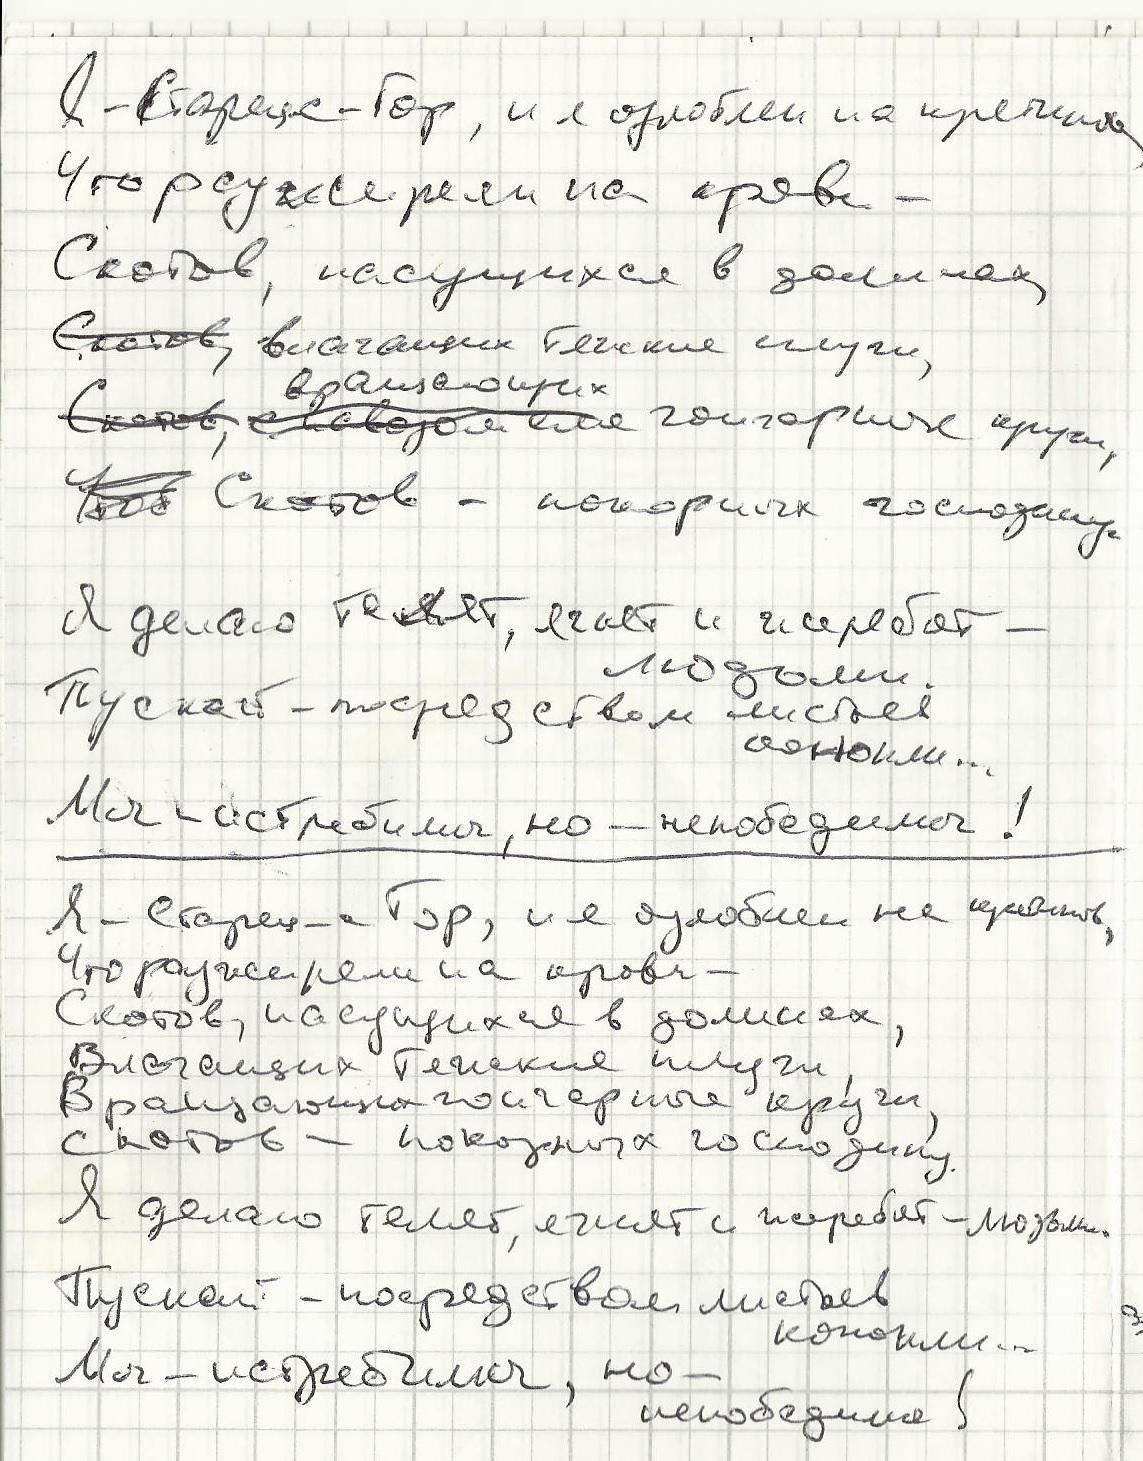 Я – Старец-с-Гор, и я озлоблен на кретинов,
Что разжирели на крови –
Скотов, пасущихся в долинах,
Скотов, влачащих тяжкие плуги,
вращающих
Скотов, гончарные круги,
Скотов – покорных господину.
Я делаю телят, ягнят и жеребят –
людьми.
Пускай – посредством листьев
конопли...
Мы – истребимы, но – непобедимы!
Я – Старец-с Гор, и я озлоблен на кретинов,
Что разжирели на крови –
Скотов, пасущихся в долинах,
Влачащих тяжкие плуги,
Вращающих гончарные круги,
Скотов – покорных господину.
Я делаю телят, ягнят и жеребят – людьми.
Пускай – посредством листьев
конопли...
Мы – истребимы, но –
непобедимы!